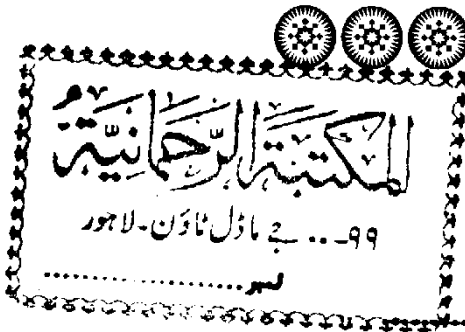 المكتبة الرحمانية
۹۹-.. جے ماڈل ٹاؤن - لاہور
نمبر....................